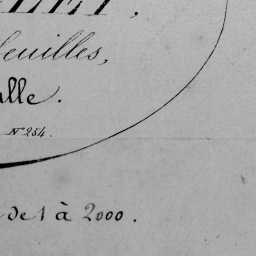 LET,
feuilles,
alle.
N° 254.
de 1 à 2000.